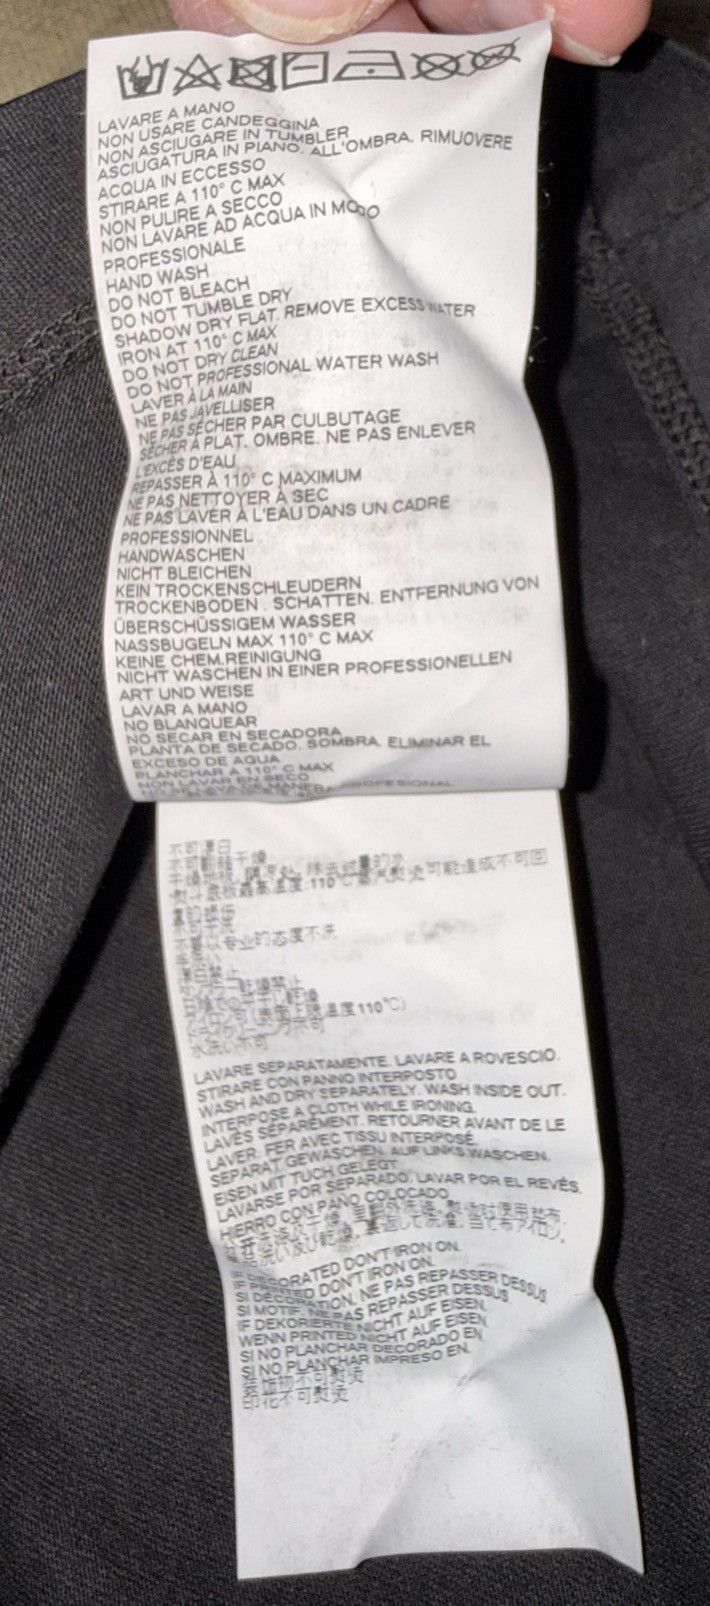 LAVARE A MANO
NON USARE CANDEGGINA
NON ASCIUGARE IN TUMBLER
ASCIUGATURA IN PIANO. ALL'OMBRA. RIMUOVERE
ACQUA IN ECCESSO
STIRARE A 110° C MAX
NON PULIRE A SECCO
NON LAVARE AD ACQUA IN MODO
PROFESSIONALE
HAND WASH
DO NOT BLEACH
DO NOT TUMBLE DRY
SHADOW DRY FLAT. REMOVE EXCESS WATER
IRON AT 110° C MAX
DO NOT DRY CLEAN
DO NOT PROFESSIONAL WATER WASH
LAVER À LA MAIN
NE PAS JAVELLISER
NE PAS SÉCHER PAR CULBUTAGE
SÉCHER À PLAT. OMBRE. NE PAS ENLEVER
L'EXCÈS D'EAU
REPASSER À 110° C MAXIMUM
NE PAS NETTOYER À SEC
NE PAS LAVER À L'EAU DANS UN CADRE
PROFESSIONNEL
HANDWASCHEN
NICHT BLEICHEN
KEIN TROCKENSCHLEUDERN
TROCKENBODEN . SCHATTEN. ENTFERNUNG VON
ÜBERSCHÜSSIGEM WASSER
NASSBUGELN MAX 110° C MAX
KEINE CHEM.REINIGUNG
NICHT WASCHEN IN EINER PROFESSIONELLEN
ART UND WEISE
LAVAR A MANO
NO BLANQUEAR
NO SECAR EN SECADORA
PLANTA DE SECADO. SOMBRA. ELIMINAR EL
EXCESO DE AGUA
PLANCHAR A 110° C MAX
NON LAVAR EN SECO
不可漂白
除去过量的水
110℃蒸汽熨烫可能造成不可回
专业的态度不洗
温度110℃)
LAVARE SEPARATAMENTE. LAVARE A ROVESCIO.
STIRARE CON PANNO INTERPOSTO
WASH AND DRY SEPARATELY. WASH INSIDE OUT.
INTERPOSE A CLOTH WHILE IRONING.
LAVÉS SÉPARÉMENT. RETOURNER AVANT DE LE
LAVER. FER AVEC TISSU INTERPOSÉ.
SEPARAT GEWASCHEN. AUF LINKS WASCHEN.
EISEN MIT TUCH GELEGT
LAVARSE POR SEPARADO. LAVAR POR EL REVÉS.
HIERRO CON PANO COLOCADO
IF DECORATED DON'T IRON ON.
IF PRINTED DON'T IRON ON.
SI DÉCORATION, NE PAS REPASSER DESSUS
SI MOTIF, NE PAS REPASSER DESSUS
IF DEKORIERTE NICHT AUF EISEN.
WENN PRINTED NICHT AUF EISEN
SI NO PLANCHAR DECORADO EN
SI NO PLANCHAR IMPRESO EN.
不可熨烫
印花不可熨烫